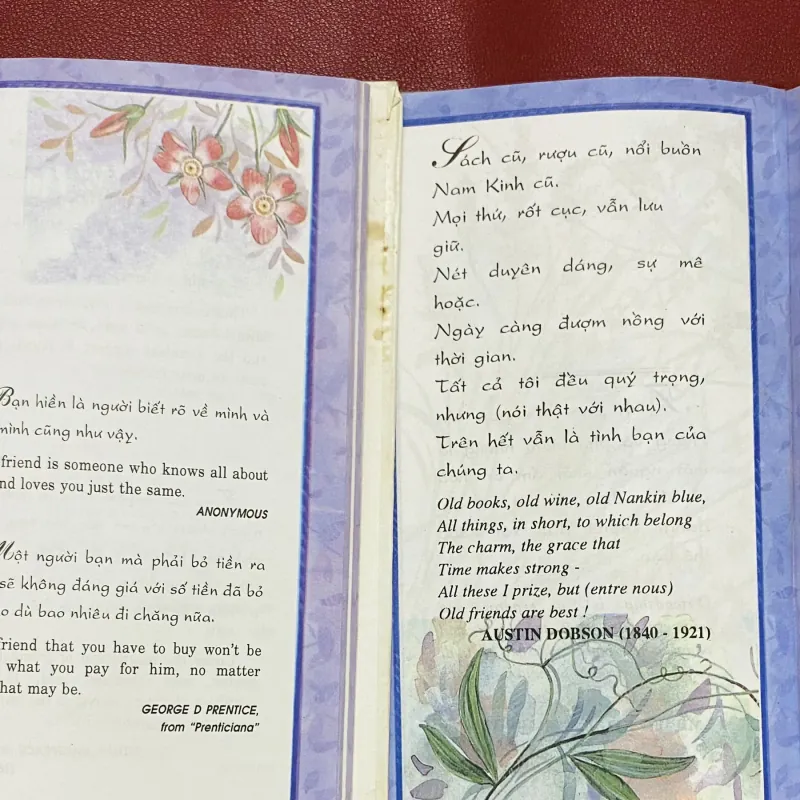 Bạn hiền là người biết rõ về mình và
mình cũng như vậy.
friend is someone who knows all about
and loves you just the same.
ANONYMOUS
Một người bạn mà phải bỏ tiền ra
sẽ không đáng giá với số tiền đã bỏ
dù bao nhiêu đi chăng nữa.
friend that you have to buy won't be
what you pay for him, no matter
what may be.
GEORGE D PRENTICE,
from "Prenticiana"
Sách cũ, rượu cũ, nổi buồn
Nam Kinh cũ.
Mọi thứ, rốt cục, vẫn lưu
giữ.
Nét duyên dáng, sự mê
hoặc.
Ngày càng đượm nồng với
thời gian.
Tất cả tôi đều quý trọng,
nhưng (nói thật với nhau).
Trên hết vẫn là tình bạn của
chúng ta.
Old books, old wine, old Nankin blue,
All things, in short, to which belong
The charm, the grace that
Time makes strong -
All these I prize, but (entre nous)
Old friends are best !
AUSTIN DOBSON (1840 - 1921)